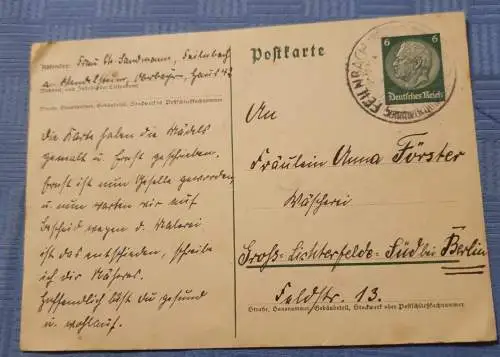 Absender: Frau Ch. Sandmann, Feilnbach
a. Wendelstein, Oberbayern, Haus 42
Wohnort, auch Zustell- oder Leitpostamt
Straße, Hausnummer, Gebäudeteil, Stockwerk od. Postschließfachnummer
Die Karte haben die Mädels
gemalt u. Ernst geschrieben.
Ernst ist nun Geselle geworden,
u. nun warten wir auf
Bescheid wegen d. Malerei
ist das entschieden, schreibe
ich dir Näheres.
Hoffentlich bist Du gesund
u. wohlauf.
Postkarte
6 6
Deutsches Reich
FEILNBACH
An
Fräulein Anna Förster
Wäscherei
Groß-Lichterfelde-Süd bei Berlin
Feldstr. 13.
Straße, Hausnummer, Gebäudeteil, Stockwerk oder Postschließfachnummer